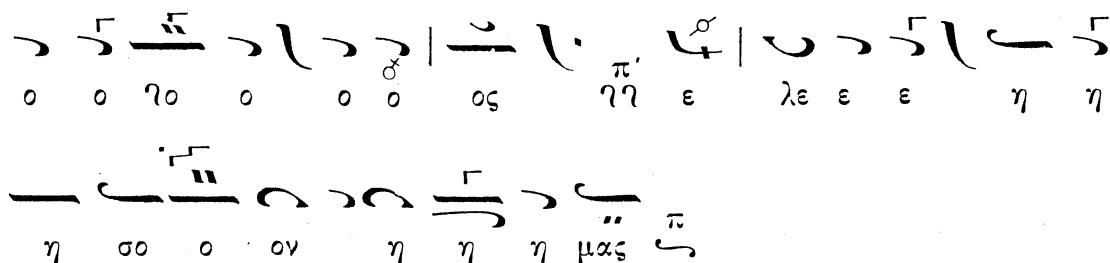 ο ο ηο ο ο ο ος π ε λε ε ε η η
η σο ο ον η η η μας π